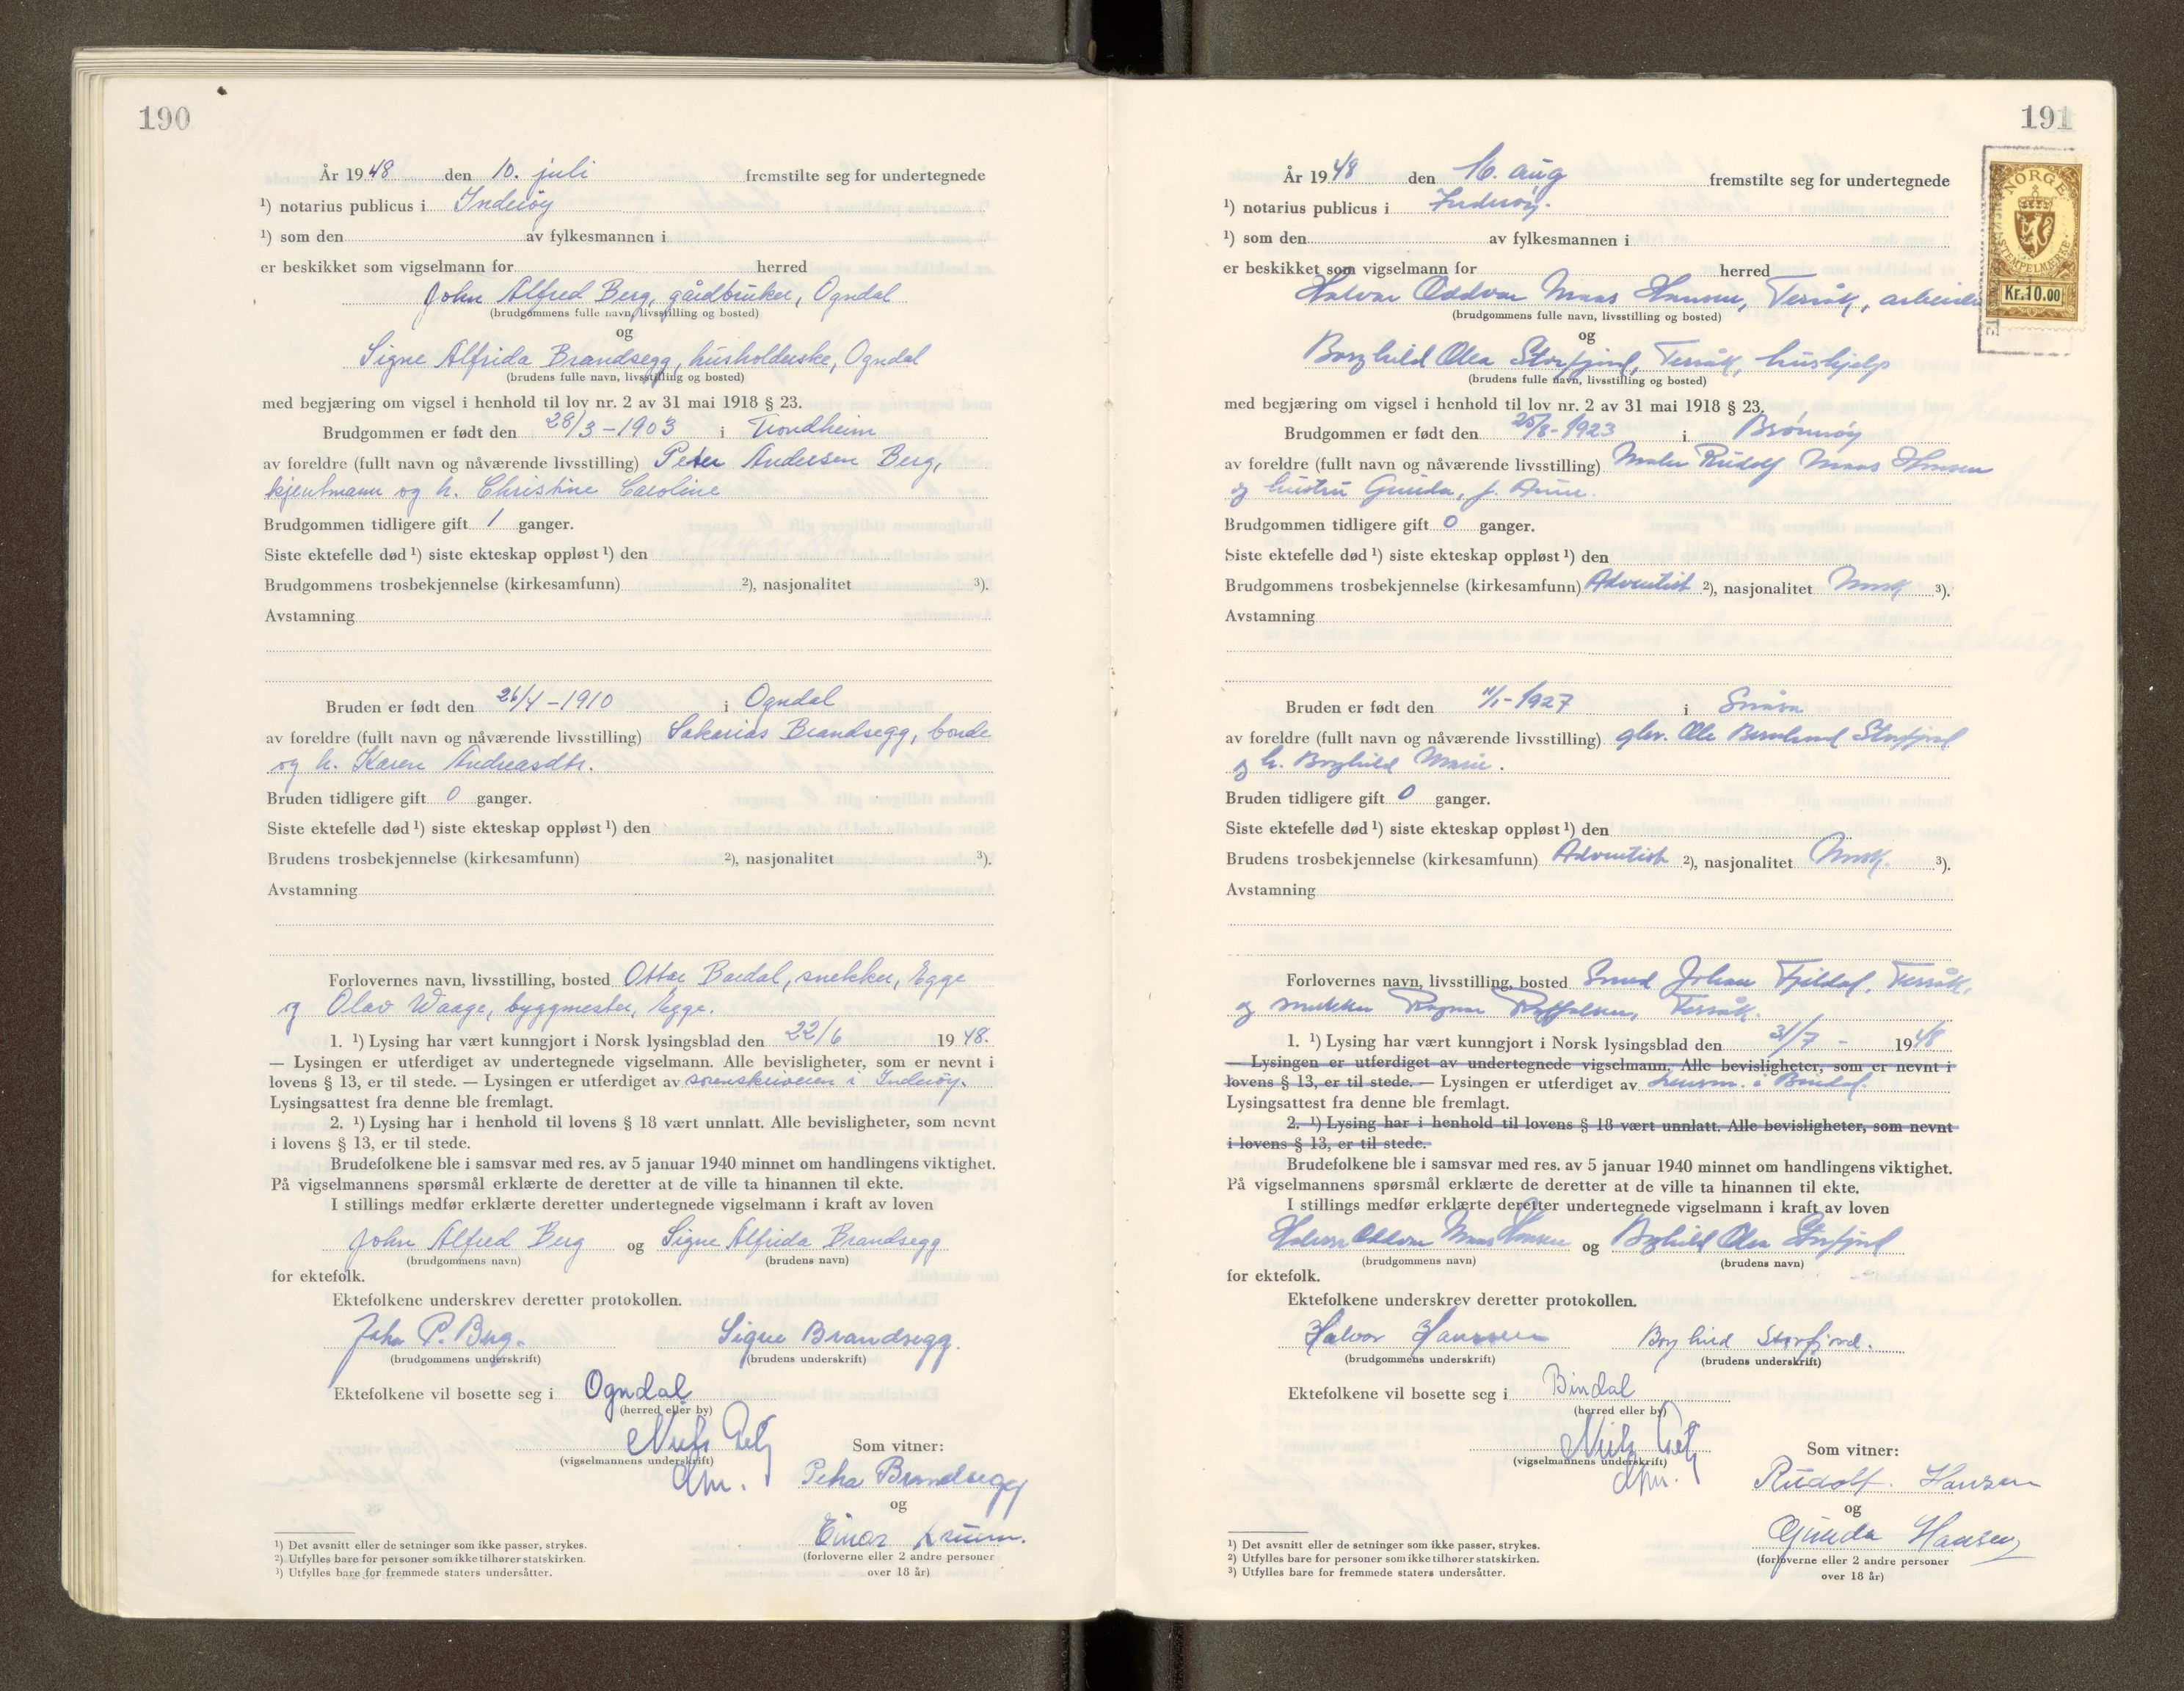 190
År 1948 den 10. juli fremstilte seg for undertegnede
¹) notarius publicus i Inderøy
¹) som den av fylkesmannen i
er beskikket som vigselmann for herred
John Alfred Berg, gårdbruker, Ogndal
(brudgommens fulle navn, livsstilling og bosted)
og
Signe Alfrida Brandsegg, husholderske, Ogndal
(brudens fulle navn, livsstilling og bosted)
med begjæring om vigsel i henhold til lov nr. 2 av 31 mai 1918 § 23.
Brudgommen er født den 28/3-1903 i Trondheim
av foreldre (fullt navn og nåværende livsstilling) Peter Andersen Berg,
kjentmann og h. Christine Caroline
Brudgommen tidligere gift 1 ganger.
Siste ektefelle død ¹) siste ekteskap oppløst ¹) den
Brudgommens trosbekjennelse (kirkesamfunn) ²), nasjonalitet ³).
Avstamning
Bruden er født den 26/4-1910 i Ogndal
av foreldre (fullt navn og nåværende livsstilling) Sakarias Brandsegg, bonde
og h. Karen Andreasdtr.
Bruden tidligere gift 0 ganger.
Siste ektefelle død ¹) siste ekteskap oppløst ¹) den
Brudens trosbekjennelse (kirkesamfunn) ²), nasjonalitet ³).
Avstamning
Forlovernes navn, livsstilling, bosted Ottar Bardal, snekker, Egge
og Olav Waage, byggmester, Egge.
1. ¹) Lysing har vært kunngjort i Norsk lysingsblad den 22/6 1948.
— Lysingen er utferdiget av undertegnede vigselmann. Alle bevisligheter, som er nevnt i
lovens § 13, er til stede. — Lysingen er utferdiget av sorenskriveren i Inderøy.
Lysingsattest fra denne ble fremlagt.
2. ¹) Lysing har i henhold til lovens § 18 vært unnlatt. Alle bevisligheter, som nevnt
i lovens § 13, er til stede.
Brudefolkene ble i samsvar med res. av 5 januar 1940 minnet om handlingens viktighet.
På vigselmannens spørsmål erklærte de deretter at de ville ta hinannen til ekte.
I stillings medfør erklærte deretter undertegnede vigselmann i kraft av loven
John Alfred Berg og Signe Alfrida Brandsegg
(brudgommens navn) (brudens navn)
for ektefolk.
Ektefolkene underskrev deretter protokollen.
John P. Berg. Signe Brandsegg.
(brudgommens underskrift) (brudens underskrift)
Ektefolkene vil bosette seg i Ogndal
(herred eller by)
Som vitner:
(vigselmannens underskrift)
Petra Brandsegg
og
Einar
(forloverne eller 2 andre personer
over 18 år)
¹) Det avsnitt eller de setninger som ikke passer, strykes.
²) Utfylles bare for personer som ikke tilhører statskirken.
³) Utfylles bare for fremmede staters undersåtter.
191
NORGE
STEMPELMERKE
Kr.10.00
År 1948 den 16. aug fremstilte seg for undertegnede
¹) notarius publicus i Inderøy.
¹) som den av fylkesmannen i
er beskikket som vigselmann for herred
Halvar Oddvar Maas Hansen, Terråk, arbeider
(brudgommens fulle navn, livsstilling og bosted)
og
Borghild Olea Storfjord, Terråk, hushjelp
(brudens fulle navn, livsstilling og bosted)
med begjæring om vigsel i henhold til lov nr. 2 av 31 mai 1918 § 23.
Brudgommen er født den 25/8-1923 i Brønnøy
av foreldre (fullt navn og nåværende livsstilling) Maler Rudolf Maas Hansen
og hustru Gunda, f.
Brudgommen tidligere gift 0 ganger.
Siste ektefelle død ¹) siste ekteskap oppløst ¹) den
Brudgommens trosbekjennelse (kirkesamfunn) Adventist ²), nasjonalitet Norsk ³).
Avstamning
Bruden er født den 11/1-1927 i Snåsa
av foreldre (fullt navn og nåværende livsstilling) gbr. Ole Bernhard Storfjord
og h. Borghild Marie.
Bruden tidligere gift 0 ganger.
Siste ektefelle død ¹) siste ekteskap oppløst ¹) den
Brudens trosbekjennelse (kirkesamfunn) Adventist ²), nasjonalitet Norsk. ³).
Avstamning
Forlovernes navn, livsstilling, bosted Smed Johan Fjeldal, Terråk,
og snekker Ragnar Terråk.
1. ¹) Lysing har vært kunngjort i Norsk lysingsblad den 31/7 - 1948
— Lysingen er utferdiget av undertegnede vigselmann. Alle bevisligheter, som er nevnt i
lovens § 13, er til stede. — Lysingen er utferdiget av lensm. i Bindal.
Lysingsattest fra denne ble fremlagt.
2. ¹) Lysing har i henhold til lovens § 18 vært unnlatt. Alle bevisligheter, som nevnt
i lovens § 13, er til stede.
Brudefolkene ble i samsvar med res. av 5 januar 1940 minnet om handlingens viktighet.
På vigselmannens spørsmål erklærte de deretter at de ville ta hinannen til ekte.
I stillings medfør erklærte deretter undertegnede vigselmann i kraft av loven
Halvar Oddvar Maas Hansen og Borghild Olea Storfjord
(brudgommens navn) (brudens navn)
for ektefolk.
Ektefolkene underskrev deretter protokollen.
Halvar Hanssen Borghild Storfjord.
(brudgommens underskrift) (brudens underskrift)
Ektefolkene vil bosette seg i Bindal
(herred eller by)
Som vitner:
(vigselmannens underskrift)
Rudolf Hansen
og
Gunda Hansen
(forloverne eller 2 andre personer
over 18 år)
¹) Det avsnitt eller de setninger som ikke passer, strykes.
²) Utfylles bare for personer som ikke tilhører statskirken.
³) Utfylles bare for fremmede staters undersåtter.